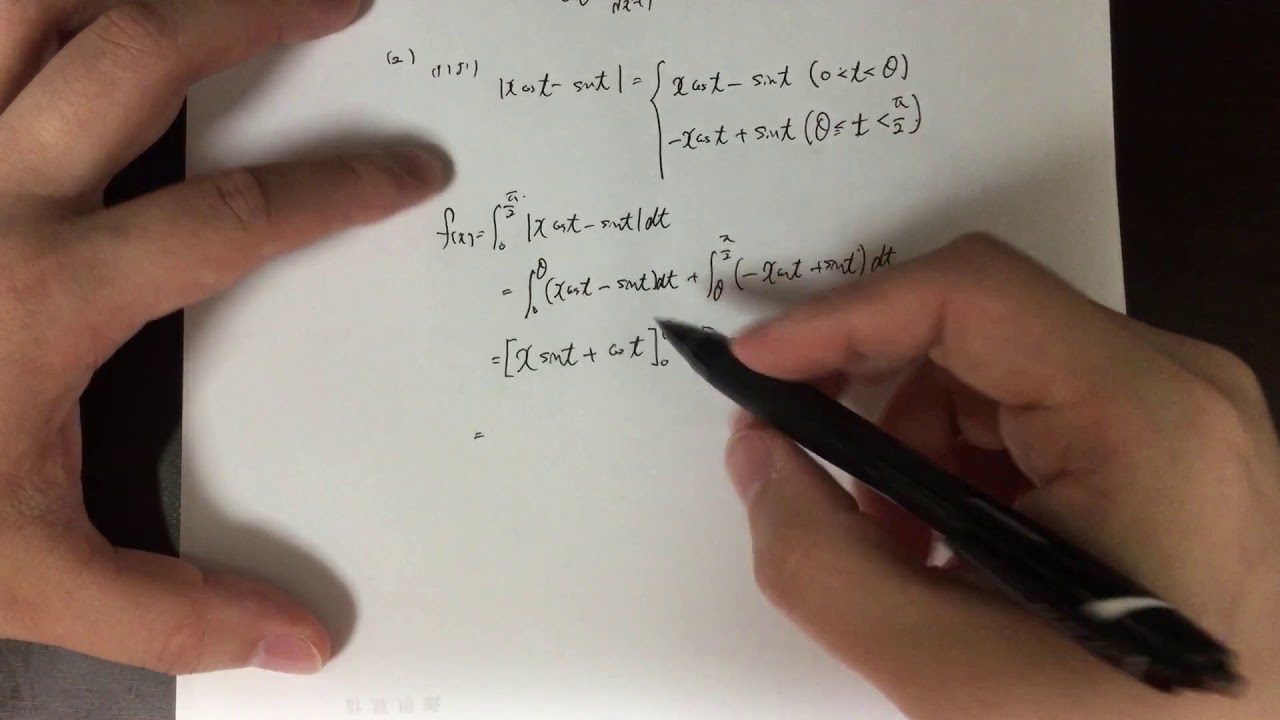 (2) (1)より
|x cos t - sin t| = { x cos t - sin t (0 < t < θ)
-x cos t + sin t (θ ≤ t < π/2)
f(x) = ∫₀^{π/2} |x cos t - sin t| dt
= ∫₀^θ (x cos t - sin t) dt + ∫_θ^{π/2} (-x cos t + sin t) dt
= [x sin t + cos t]₀
=